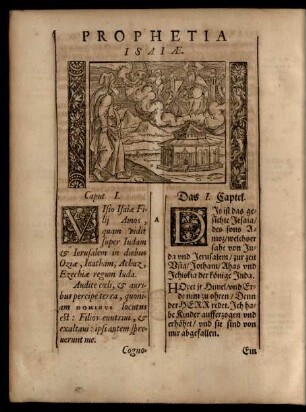 PROPHETIA
ISAIÆ.
Caput I.
VIsio Isaiæ Fi-
lij Amos,
quam vidit
super Iudam
& Ierusalem in diebus
Ozæ, Ioatham, Achaz,
Ezechiæ regum Iuda.
Audite cœli, & auri-
bus percipe terra, quoni-
am DOMINVS locutus
est: Filios enutriui, &
exaltaui: ipsi autem spre-
uerunt me.
Cogno-
A
Das I. Capitel.
DIs ist das ge-
sichte Jesaia/
des sons A-
moz/welches er
sahe von Ju-
da vnd Jerusalem/ zur zeit
Vsia/Jotham/ Ahas vnd
Jehiskia der Könige Juda.
HOret jr Himel/vnd Er-
de nim zu ohren/ Denn
der HERR redet. Ich ha-
be Kinder aufferzogen vnd
erhöhet/ vnd sie sind von
mir abgefallen.
Ein